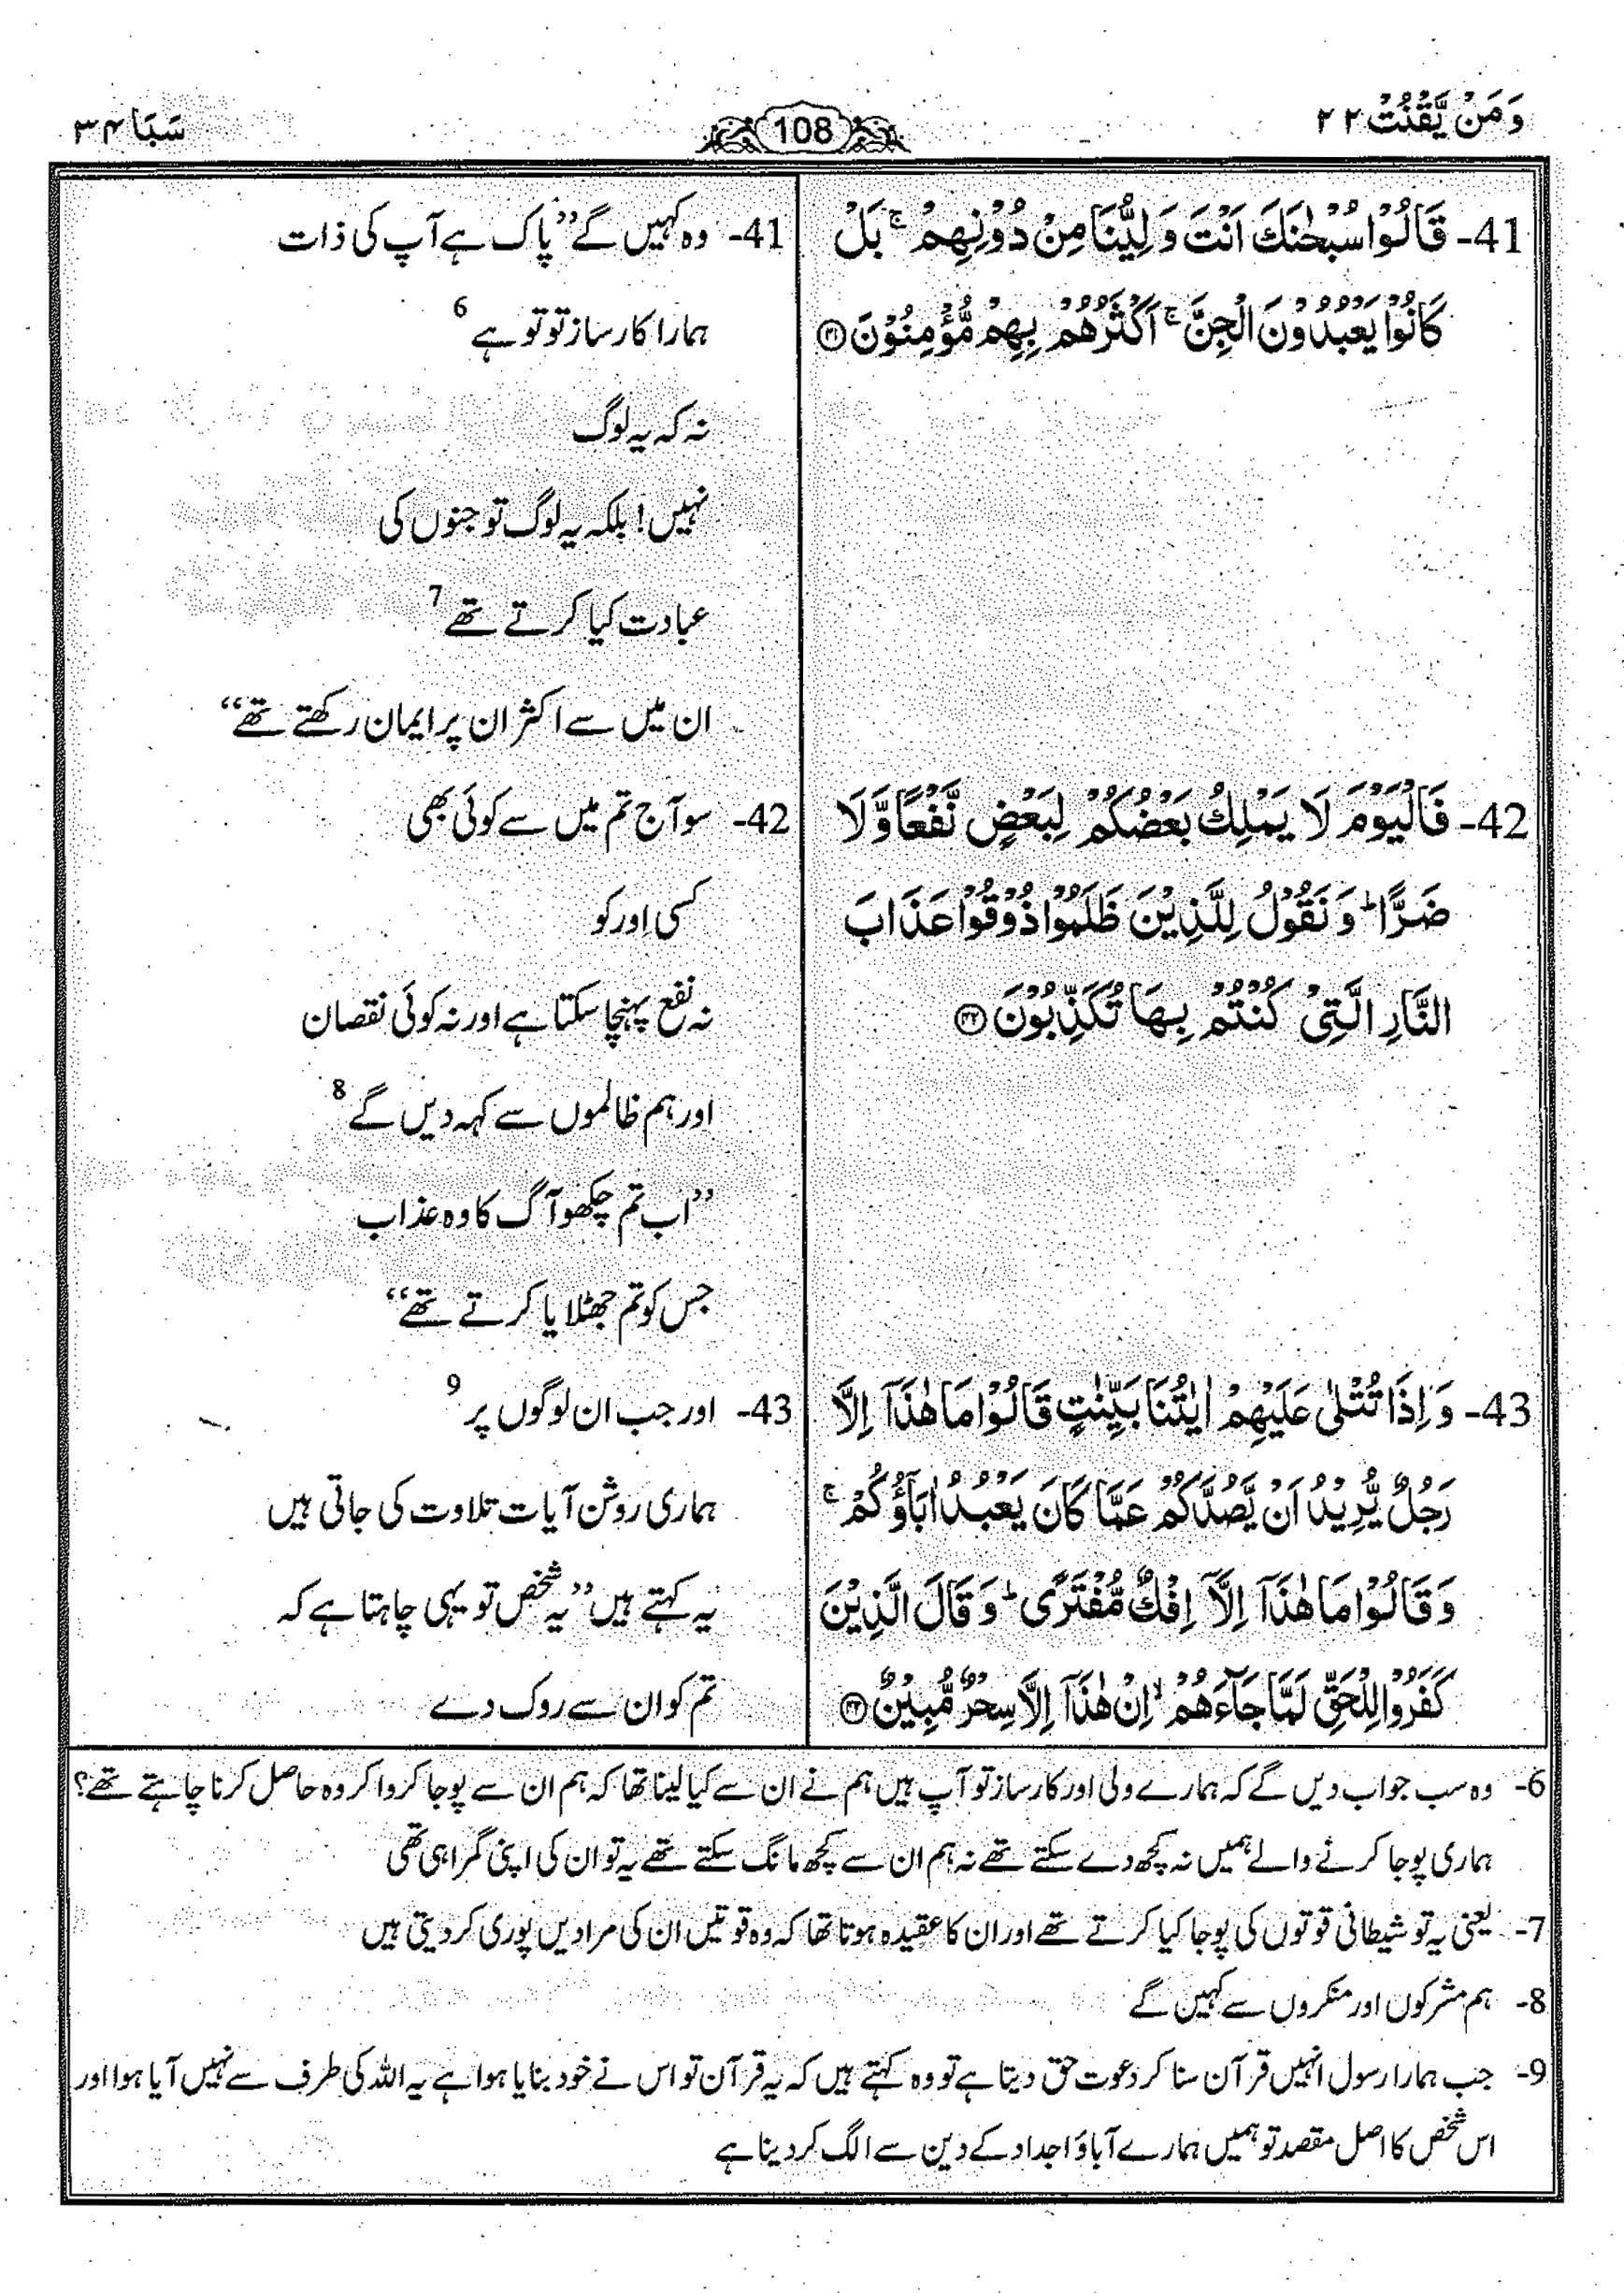 وَمَنْ يَّقْنُتْ ٢٢
108
سَبَا ٣٤
41- قَالُوْا سُبْحٰنَكَ اَنْتَ وَلِيُّنَا مِنْ دُوْنِهِمْ ۚ بَلْ
كَانُوْا يَعْبُدُوْنَ الْجِنَّ ۚ اَكْثَرُهُمْ بِهِمْ مُّؤْمِنُوْنَ ۝۴۱
42- فَالْيَوْمَ لَا يَمْلِكُ بَعْضُكُمْ لِبَعْضٍ نَّفْعًا وَّلَا
ضَرًّا ؕ وَنَقُوْلُ لِلَّذِيْنَ ظَلَمُوْا ذُوْقُوْا عَذَابَ
النَّارِ الَّتِيْ كُنْتُمْ بِهَا تُكَذِّبُوْنَ ۝۴۲
43- وَاِذَا تُتْلٰى عَلَيْهِمْ اٰيٰتُنَا بَيِّنٰتٍ قَالُوْا مَا هٰذَآ اِلَّا
رَجُلٌ يُّرِيْدُ اَنْ يَّصُدَّكُمْ عَمَّا كَانَ يَعْبُدُ اٰبَآؤُكُمْ ۚ
وَقَالُوْا مَا هٰذَآ اِلَّآ اِفْكٌ مُّفْتَرًى ؕ وَقَالَ الَّذِيْنَ
كَفَرُوْا لِلْحَقِّ لَمَّا جَآءَهُمْ ۙ اِنْ هٰذَآ اِلَّا سِحْرٌ مُّبِيْنٌ ۝۴۳
41- وہ کہیں گے ”پاک ہے آپ کی ذات
ہمارا کارساز تو تو ہے 6
نہ کہ یہ لوگ
نہیں! بلکہ یہ لوگ تو جنوں کی
عبادت کیا کرتے تھے 7
ان میں سے اکثر ان پر ایمان رکھتے تھے“
42- سو آج تم میں سے کوئی بھی
کسی اور کو
نہ نفع پہنچا سکتا ہے اور نہ کوئی نقصان
اور ہم ظالموں سے کہہ دیں گے 8
”اب تم چکھو آگ کا وہ عذاب
جس کو تم جھٹلایا کرتے تھے“
43- اور جب ان لوگوں پر 9
ہماری روشن آیات تلاوت کی جاتی ہیں
یہ کہتے ہیں ”یہ شخص تو یہی چاہتا ہے کہ
تم کو ان سے روک دے
6- وہ سب جواب دیں گے کہ ہمارے ولی اور کارساز تو آپ ہیں ہم نے ان سے کیا لینا تھا کہ ہم ان سے پوجا کروا کر وہ حاصل کرنا چاہتے تھے؟
ہماری پوجا کرنے والے ہمیں نہ کچھ دے سکتے تھے نہ ہم ان سے کچھ مانگ سکتے تھے یہ تو ان کی اپنی گمراہی تھی
7- یعنی یہ تو شیطانی قوتوں کی پوجا کیا کرتے تھے اور ان کا عقیدہ ہوتا تھا کہ وہ قوتیں ان کی مرادیں پوری کر دیتی ہیں
8- ہم مشرکوں اور منکروں سے کہیں گے
9- جب ہمارا رسول انہیں قرآن سنا کر دعوت حق دیتا ہے تو وہ کہتے ہیں کہ یہ قرآن تو اس نے خود بنایا ہوا ہے یہ اللہ کی طرف سے نہیں آیا ہوا اور
اس شخص کا اصل مقصد تو ہمیں ہمارے آباؤ اجداد کے دین سے الگ کر دینا ہے